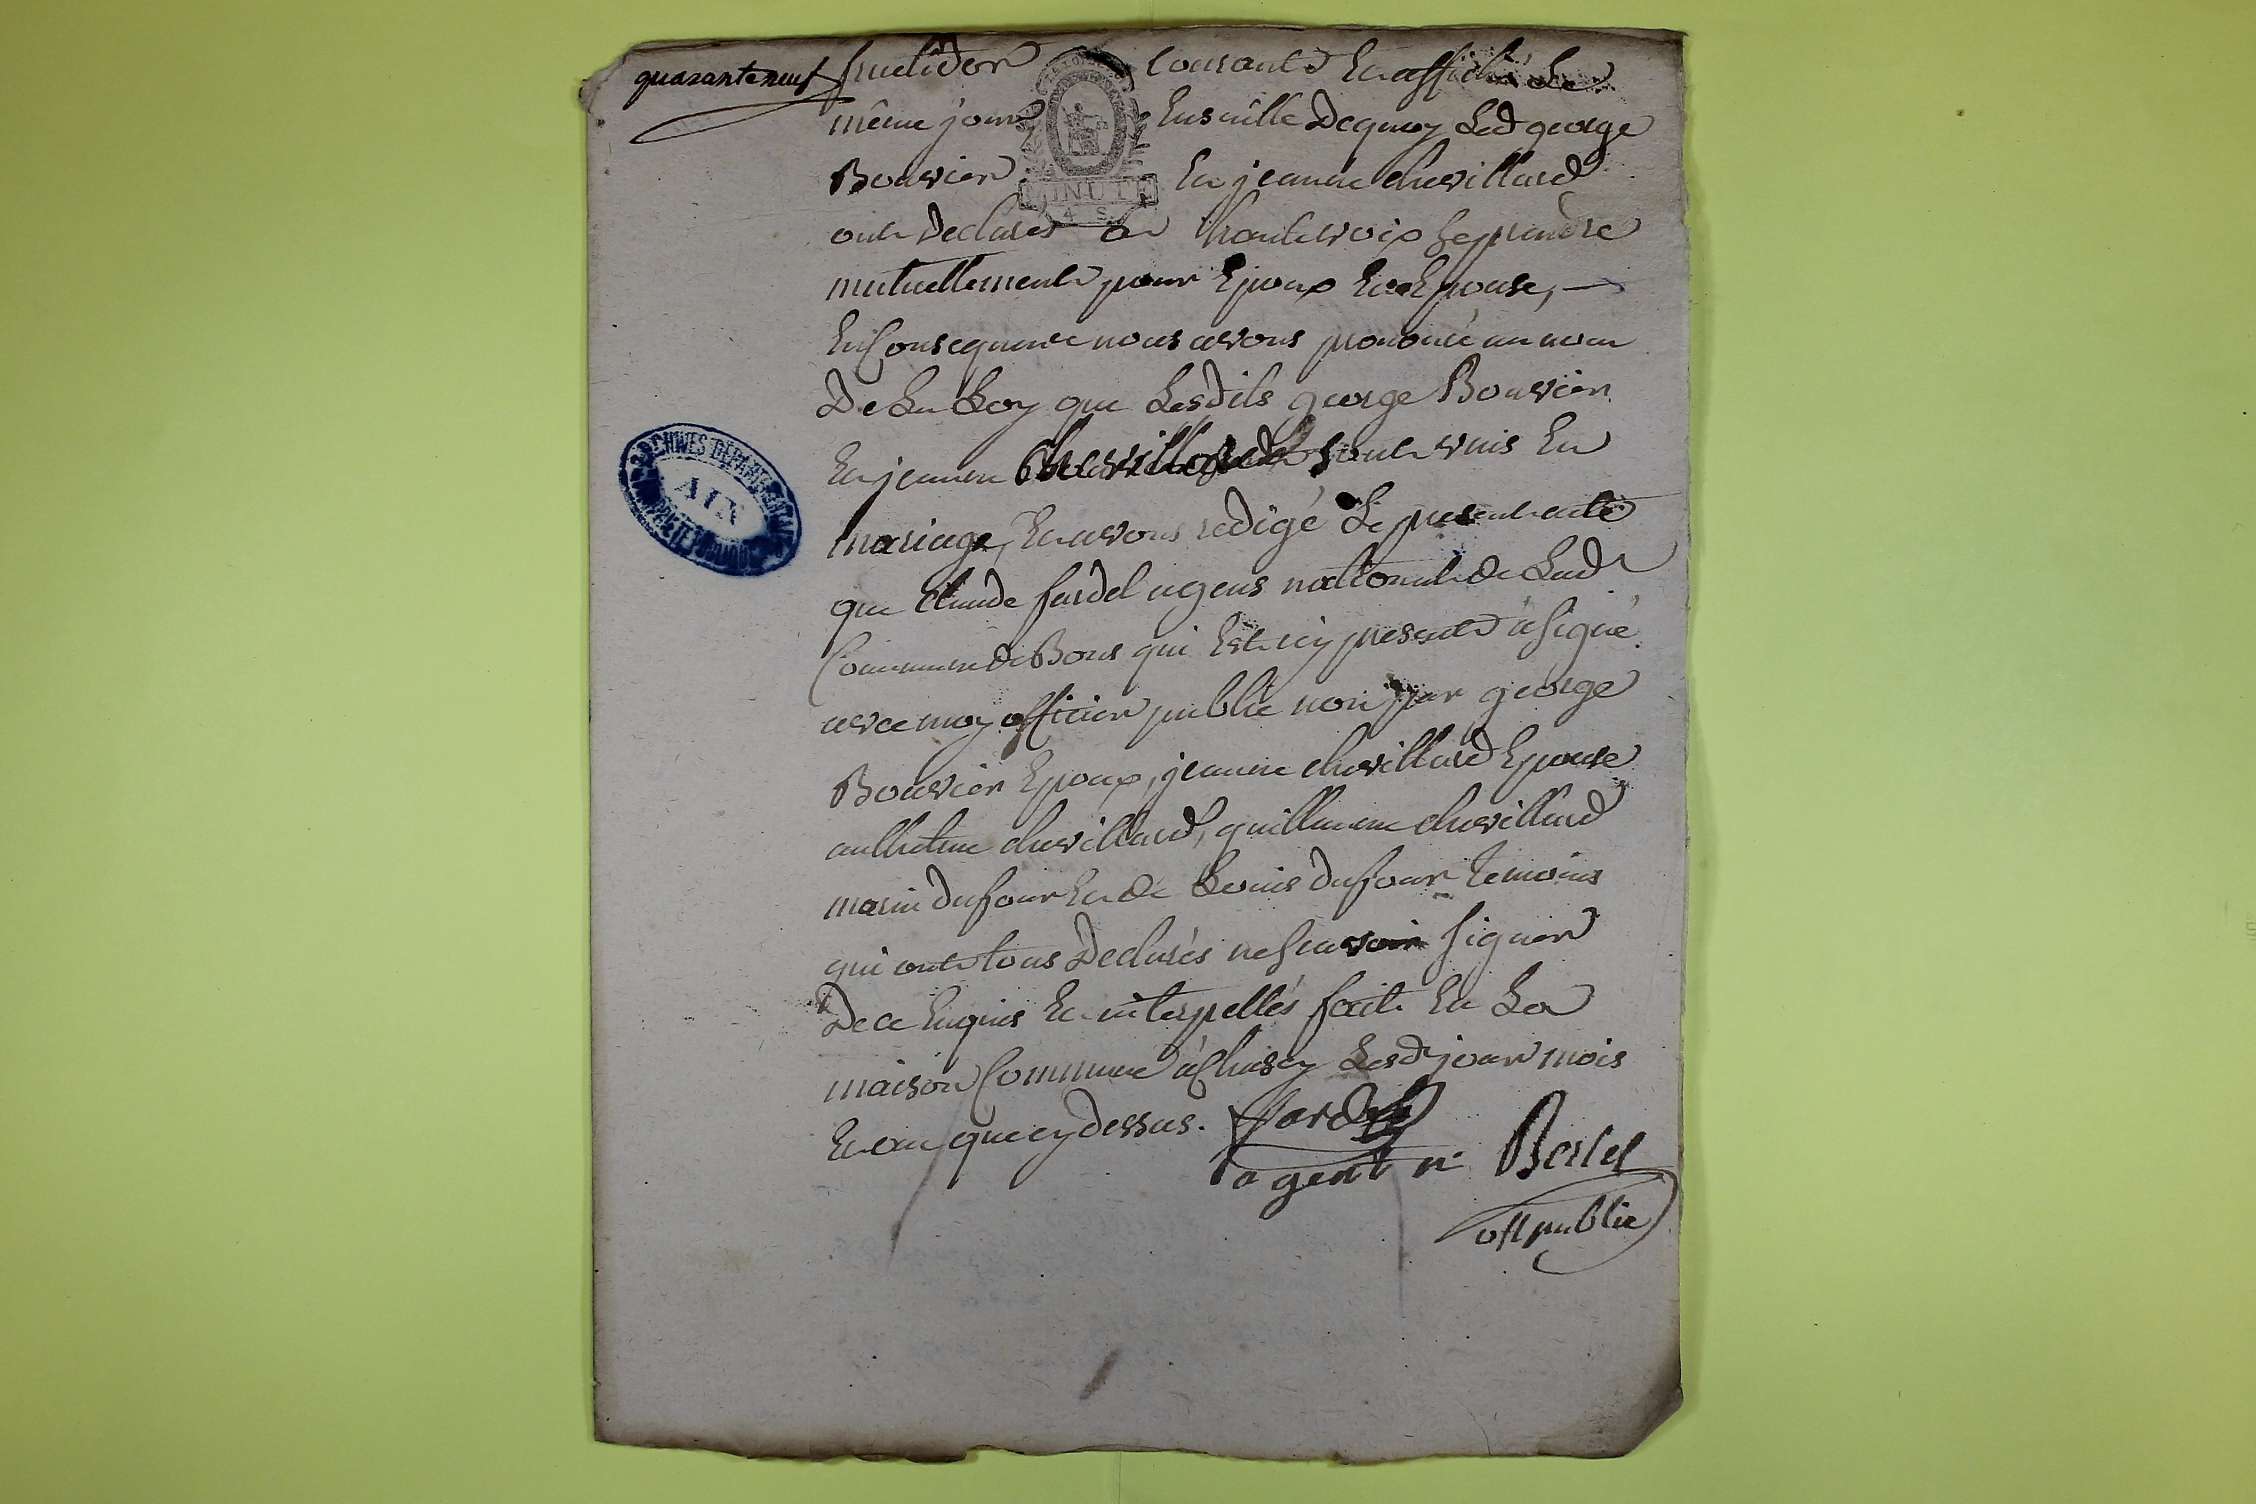 quarante neuf
fructidor courant et affiché le
même jour Ensuitte Dequoy Led george
Bouvier et jeanne chevillard
ont Declarés a haute voix se prendre
mutuellement pour Epoux et Epouse,
En Consequence nous avons prononcé au nom
De La Loy que Lesdits george Bouvier
et jeanne Chevillard sont unis En
mariage, et avons redigé Le present acte
que Claude fardel agens national de Lad
Commune de Bons qui Est icy present a signé
avec moy officier public non par george
Bouvier Epoux, jeanne chevillard Epouse
anthelme chevillard, guillaume chevillard
marin Dufour et de Louis Dufour temoins
qui ont tous Declarés ne scavoir signer
De ce Enquis et interpellés fait En La
maison Commune à Chasey Lesd jour mois
et an que cy dessus.
fardel
agent n
Berlet
off public
ARCHIVES DEPARTEMENTALES
AIN
MINUTE
4 S.